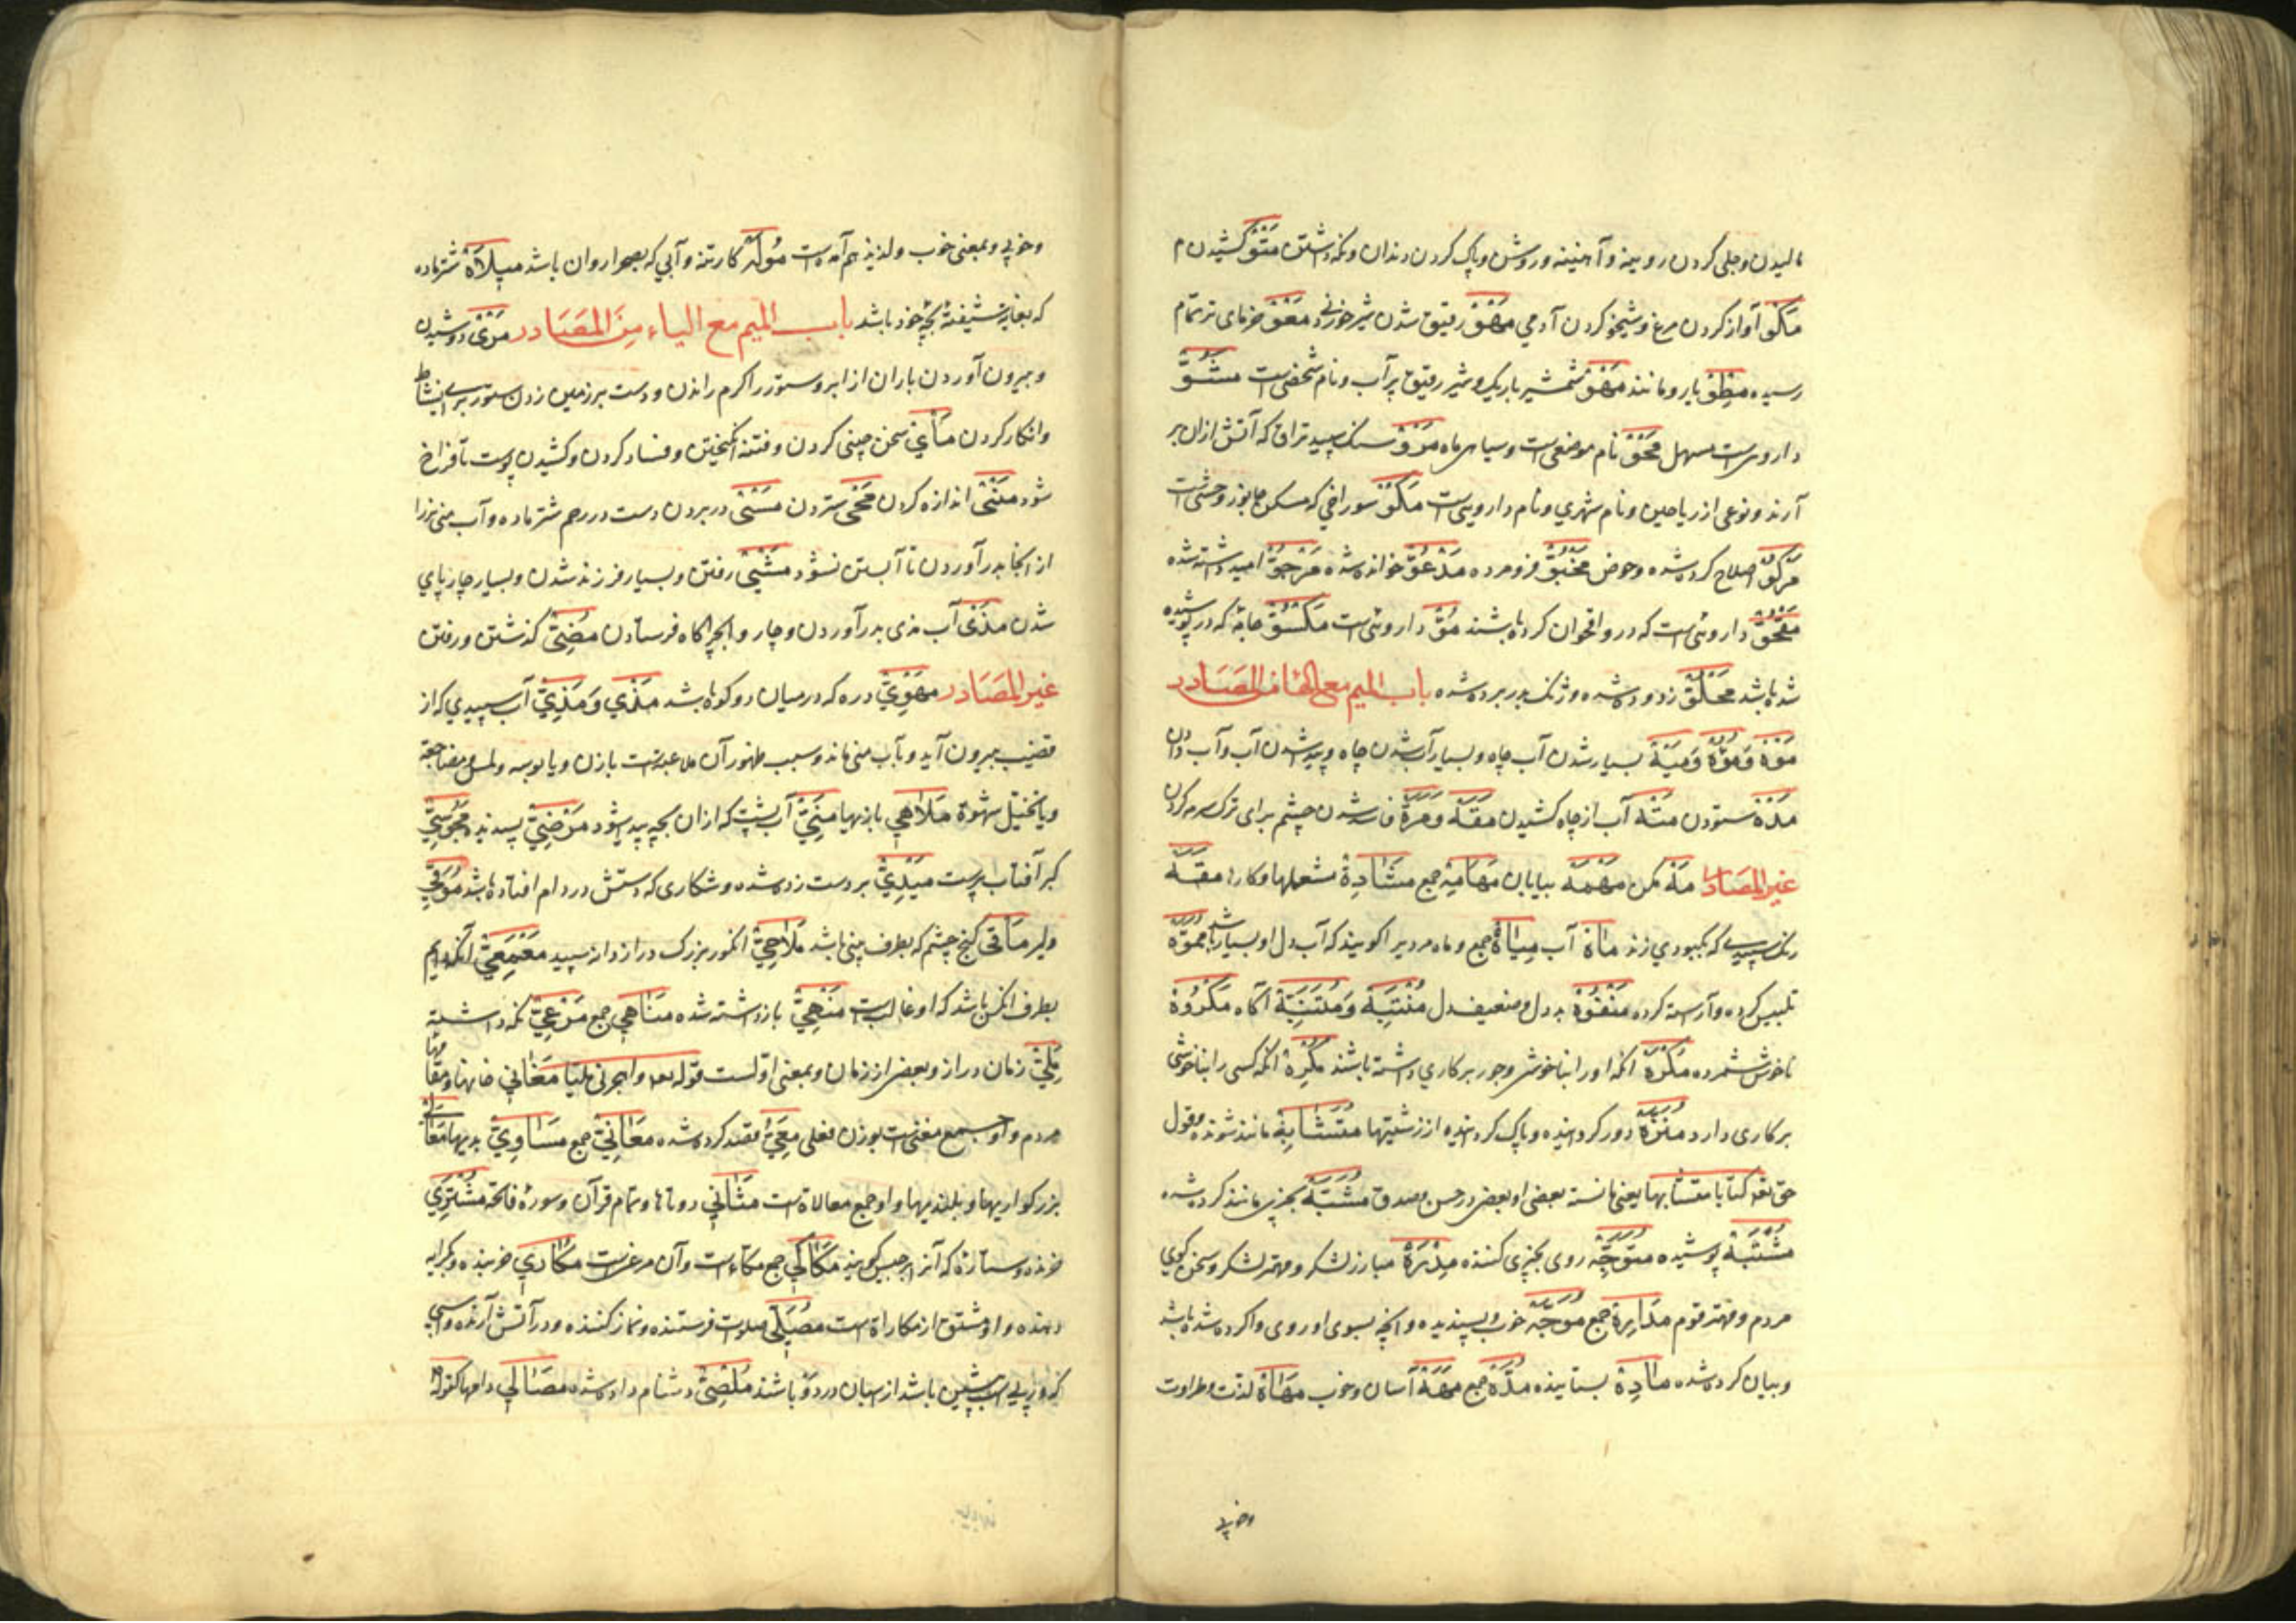 مالیدن و جلی کردن رویینه و آهنینه و روشن و پاک کردن دندان و نکه داشتن مَتْوٌ کشیدن م
مَکْوٌ آواز کردن مرغ و شیخو کردن آدمی مَهْوٌ رقیق شدن شیر خوزنی و مَعْوٌ خرمای تر تمام
رسیده مِطْوٌ یار و مانند مَهْوٌ شمشیر باریک و شیر رقیق پر آب و نام شخصی است مَشُوٌّ
داروی است مسهل مَحْوٌ نام موضعی است و سیاهی ماه مَرْوٌ سنک سپید تراق که آتش ازان بر
آرند و نوعی از ریاحین و نام شهری و نام دارویی است مَکْوٌ سوراخی که مسکن جانور وحشی است
مَرْکُوٌّ اصلاح کرده شده و حوض مَخْبُوٌّ فرو مرده مَدْعُوٌّ خوانده شده مَرْجُوٌّ امید داشته شده
داروئی است که درو اقحوان کرده باشند مَکْسُوٌّ جامه که در پوشیده
شده باشد مَجْلُوٌّ زدوده شده و ژنک بدر برده شده باب المیم مع الهاء من المصادر
مَوْهٌ وَمُؤُهٌ وَمَیْهٌ بسیار شدن آب چاه و بسیار آب شدن چاه و پدید شدن آب و آب دادن
مَدْهٌ ستودن مَتْهٌ آب از چاه کشیدن مَقَهٌ وَمَرَهٌ فاسد شدن چشم برای ترک سرمه کردن
غیر المصادر مَهْ مکن مَهْمَهٌ بیابان مَهَامِهُ جمع مَشَادِهُ مشغلها و کارها مَقَهٌ
رنک سپیدی که بکبودی زند مَاهٌ آب مِیَاهٌ جمع و ماه مردیرا کویند که آب دل او بسیار باشد مُمَوَّهٌ
تلبیس کرده و آراسته کرده مَنْفُوهٌ بددل و ضعیف دل مُنْتَبِهٌ وَمُتَنَبِّهٌ آکاه مَکْرُوهٌ
ناخوش شمرده مُکْرَهٌ انکه او را بناخوشی و جور بر کاری داشته باشند مُکْرِهٌ انکه کسی را بناخوشی
بر کاری دارد مُنَزَّهٌ دور کردانیده و پاک کردانیده از زشتیها مُتَشَابِهٌ مانند شونده و قول
حق تعه کتابا متشابها یعنی مانسته بعضی او بعض در حسن و صدق مُشَبَّهٌ بچیزی مانند کرده شده
مُشْتَبِهٌ پوشیده مُتَوَجِّهٌ روی بچیزی کننده مِدْرَهٌ مبارز لشکر و مهتر لشکر و سخن کوی
مردم و مهتر قوم مَدَارِهُ جمع مُوَجَّهٌ خوب و پسندیده و انچه بسوی او روی واکرده شده باشد
و بیان کرده شده مَادِهٌ ستاینده مُدَّهٌ جمع مَهَهٌ آسان و خوب مَهَاهٌ لذت و طراوت
وخوبی
وخوبی و بمعنی خوب و لذیذ هم آمده است مُولَهٌ کارتنه و آبی که بصحرا روان باشد مِیلَاهٌ شتر ماده
که بغایت شیفتهٔ بچهٔ خود باشد باب المیم مع الیاء مِنَ المَصَادر مَرْیٌ دوشیدن
و بیرون آوردن باران از ابر و ستور را کرم راندن و دست بر زمین زدن ستور برای نشاط
و انکار کردن مَأْیٌ سخن چینی کردن و فتنه انکیختن و فساد کردن و کشیدن پوست تا فراخ
شود مَنْیٌ اندازه کردن مَحْیٌ ستردن مَسْیٌ در بردن دست در رحم شتر ماده و آب منی نر را
از انجا بدر آوردن تا آبستن نشود مَشْیٌ رفتن و بسیار فرزند شدن و بسیار چارپای
شدن مَذْیٌ آب مذی بدر آوردن و چاروا بچراکاه فرستادن مُضِیٌّ کذشتن و رفتن
غیر المَصَادر مَهْوِیٌّ دره که در میان دو کوه باشد مَذْیٌ وَمَذِیٌّ آب سپیدی که از
قضیب بیرون آید و بآب منی ماند و سبب ظهور آن ملاعبت است با زن و یا بوسه و لمس و مضاجعه
و یا تخیل شهوة مَلَاهِی بازیها مَنِیٌّ آب پشت که ازان بچه پدید شود مَرْضِیٌّ پسندیده مَجُوسِیٌّ
کبر آفتاب پرست مَیْدِیٌّ بر دست زده شده و شکاری که دستش در دام افتاده باشد
دلیر مَأْقِی کنج چشم که بطرف بینی باشد مُلَاحِیٌّ انکور بزرک دراز دانه سپید مَعْمَعِیٌّ آنکه دایم
بطرف انکس باشد که او غالب است مَنْهِیٌّ بازداشته شده مَنَاهِی جمع مَرْعِیٌّ نکه داشته
مَلِیٌّ زمان دراز و بعضی از زمان و بمعنی اوّل است قوله تعه واهجرنی ملیا مَغَانِی خانها و مقامها
مردم و او جمع مغنی است بوزن فعلی مَعْنِیٌّ قصد کرده شده مَعَانِیٌ جمع مَسَاوِیٌ بدیها مَعَالِی
بزرکواریها و بلندیها و او جمع معالاة است مَثَانِی دوتاها و تمام قرآن و سورهٔ فاتحه مُشْتَرِی
خرنده و ستارهٔ که آنرا برجیس کویند مَکَاکِی جمع مکاء است و آن مرغیست مُکَارِی خربنده و بکرایه
دهنده و او مشتق از مکاراة است مُصَلِّی صلوات فرستنده و نماز کننده و در آتش آرنده و اسبی
که در پی اسب پیشین باشد از اسبان در دو باشند دشنام داده شده مَصَالِی دامها کقوله